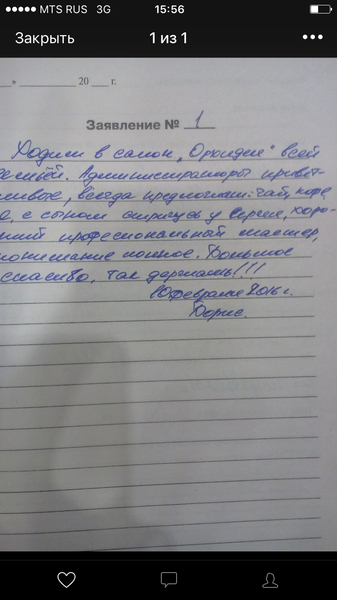 MTS RUS 3G 15:56
Закрыть 1 из 1
" 20 г.
Заявление № 1
Ходим в салон „Орхидея" всей
семьёй. Администраторы привет-
ливые, всегда предлогают: чай, кофе
с сыном стрижёмся у Сергея, хоро-
ший професиональный мастер,
понимание полное. Большое
спасибо. Так держать!!!
10 февраля 2016 г.
Борис.